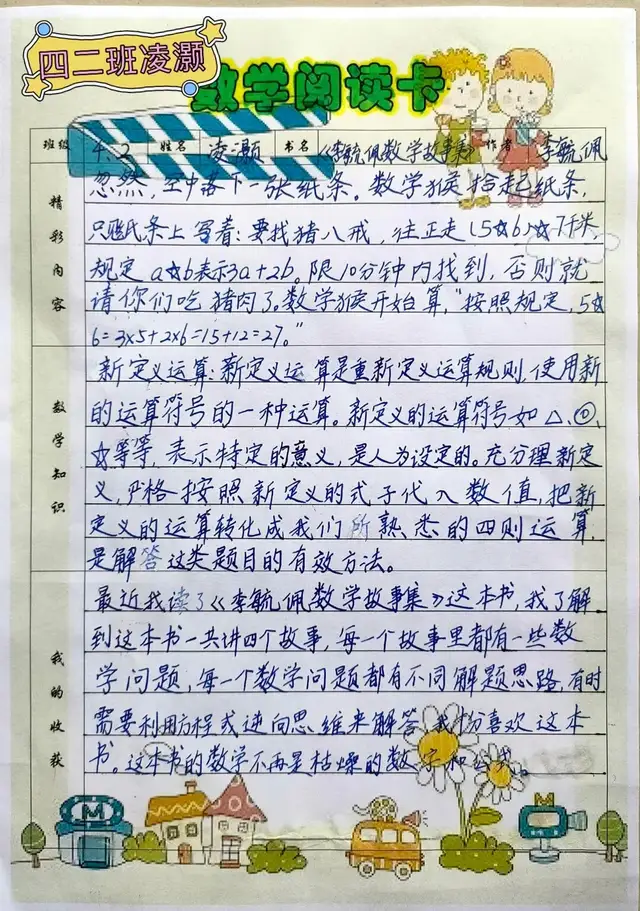 四二班凌灏
数学阅读卡
班级 4.2 姓名 凌灏 书名 《李毓佩数学故事集》 作者 李毓佩
精彩内容
忽然，空中落下一张纸条。数学猴拾起纸条，
只见纸条上写着：要找猪八戒，往正走（5☆6）☆7千米，
规定a☆b表示3a+2b。限10分钟内找到，否则就
请你们吃猪肉了。数学猴开始算，“按照规定，5☆
6=3×5+2×6=15+12=27。”
数学知识
新定义运算：新定义运算是重新定义运算规则，使用新
的运算符号的一种运算。新定义的运算符号如△、◎、
☆等等，表示特定的意义，是人为设定的。充分理新定
义，严格按照新定义的式子代入数值，把新
定义的运算转化成我们所熟悉的四则运算，
是解答这类题目的有效方法。
我的收获
最近我读了《李毓佩数学故事集》这本书，我了解
到这本书一共讲四个故事，每一个故事里都有一些数
学问题，每一个数学问题都有不同解题思路，有时
需要利用方程式逆向思维来解答，我十分喜欢这本
书。这本书的数学不再是枯燥的数字和公式。
M
M